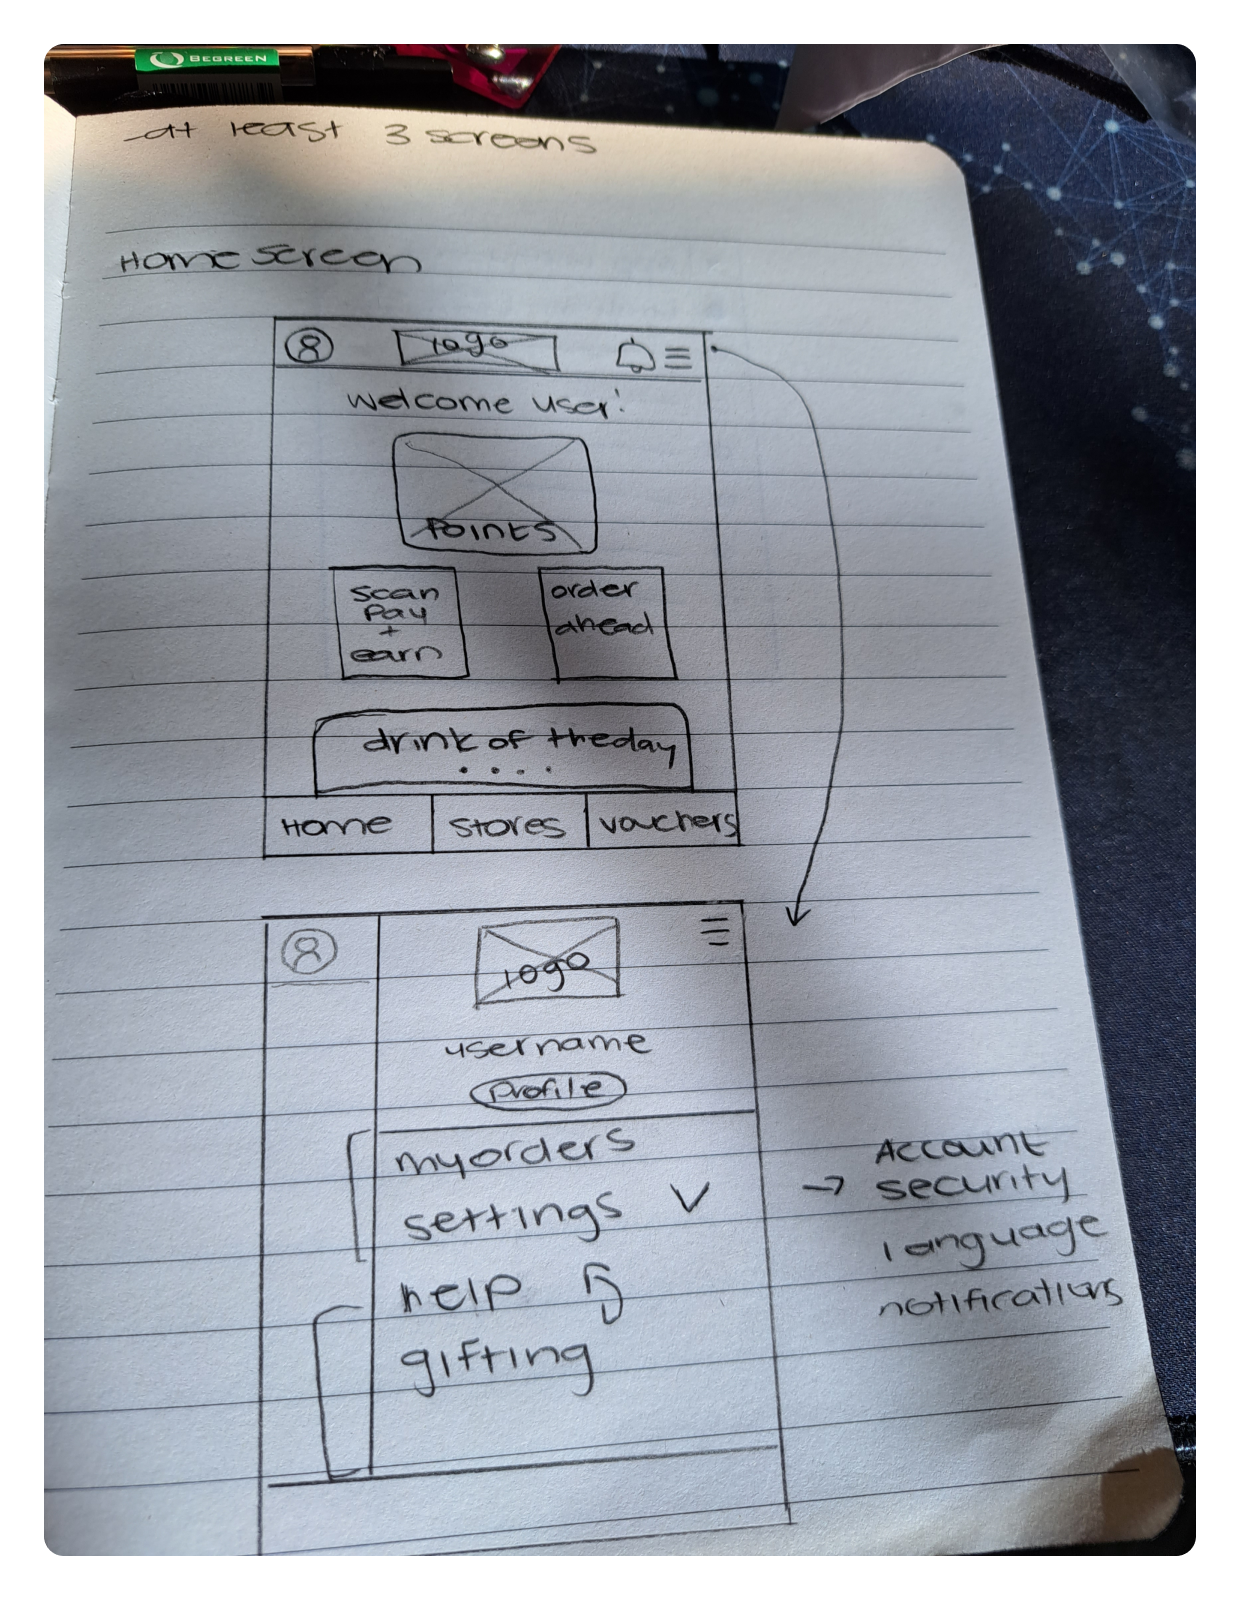 BEGREEN
-at least 3 screens
Home Screen
logo
welcome user!
POINTS
scan
Pay
+
earn
order
ahead
drink of the day
....
Home
stores
vouchers
logo
username
Profile
my orders
settings
help
gifting
Account
→ security
language
notifications